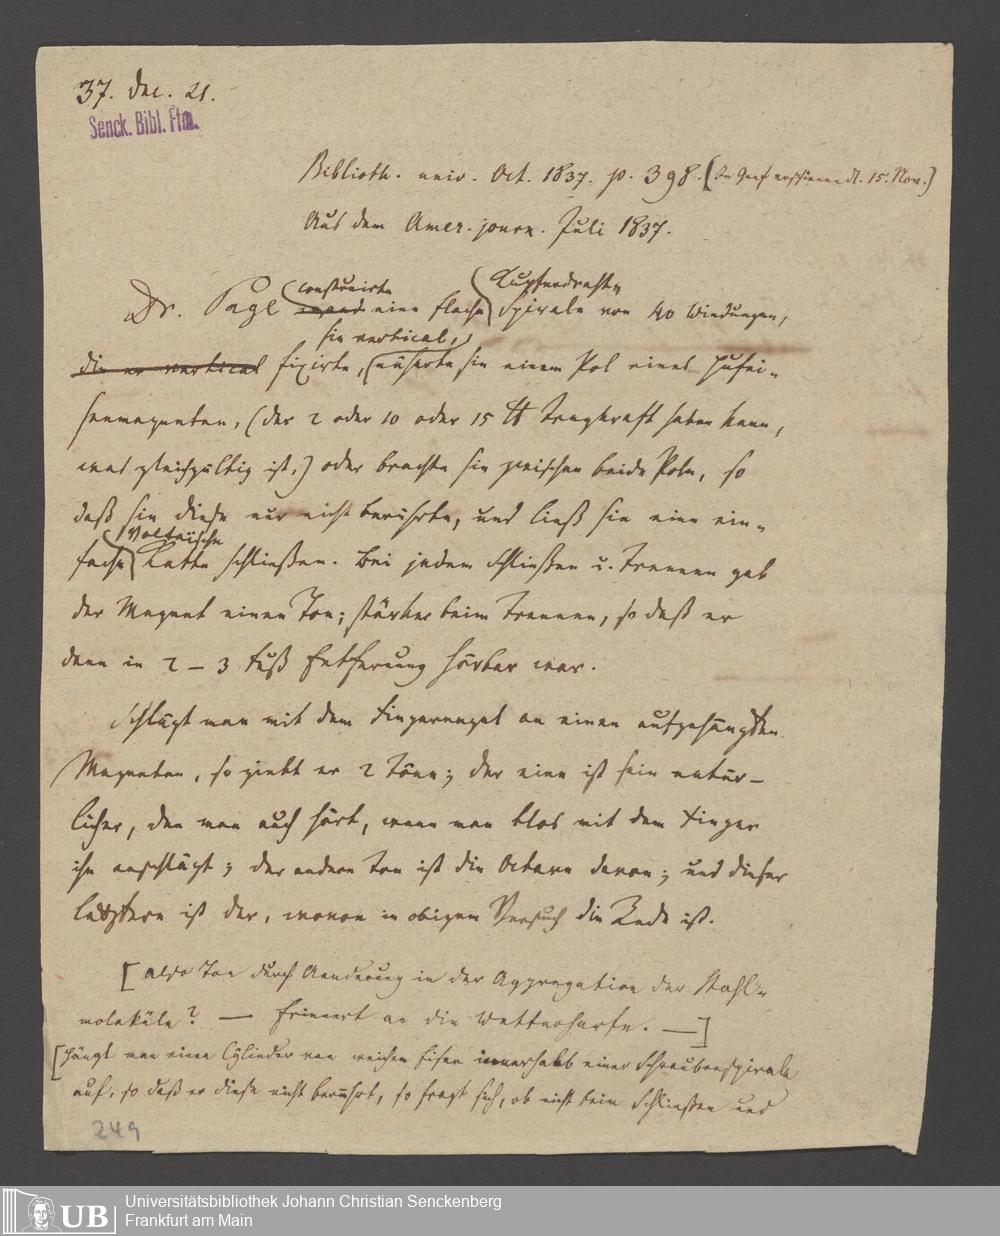 37. Dec. 21.
Senck. Bibl. Ffm.
Biblioth. univ. Oct. 1837. p. 398. (In Genf erschienen d. 15. Nov.)
Aus dem Amer. journ. Juli 1837.
construirte Kupferdraht-
Dr. Page eine flache Spirale von 40 Windungen,
sie vertical,
die er vertical fixirte, näherte sie einem Pol eines Hufei-
senmagneten, (der 2 oder 10 oder 15 ℔ Tragkraft haben kann,
was gleichgültig ist,) oder brachte sie zwischen beide Pole, so
daß sie diese nur nicht berührte, und ließ sie eine ein-
Voltaische
fache Kette schließen. Bei jedem Schließen u. Trennen gab
der Magnet einen Ton; stärker beim Trennen, so daß er
dann in 2 – 3 Fuß Entfernung hörbar war.
Schlägt man mit dem Fingernagel an einen aufgehängten
Magneten, so giebt er 2 Töne; der eine ist sein natür-
licher, den man auch hört, wenn man blos mit dem Finger
ihn anschlägt; der andere Ton ist die Octave davon; und dieser
letztere ist der, wovon in obigem Versuch die Rede ist.
[also Ton durch Aenderung in der Aggregation der Stahl-
moleküle? — Erinnert an die Wetterharfe. —]
[Hängt man einen Cylinder von weichem Eisen innerhalb einer Schraubenspirale
auf, so daß er diese nicht berührt, so fragt sich, ob nicht beim Schließen und
249
UB
Universitätsbibliothek Johann Christian Senckenberg
Frankfurt am Main